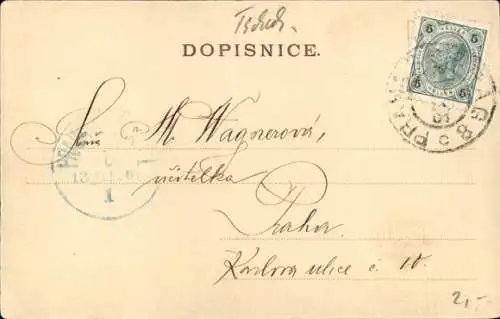 Tschech.
DOPISNICE.
5 HELLER 5
5 5
PRAG 8 PRAHA
Sl. M. Wagnerová,
učitelka
Praha.
Karlova ulice č. 10.
13
1
2,-